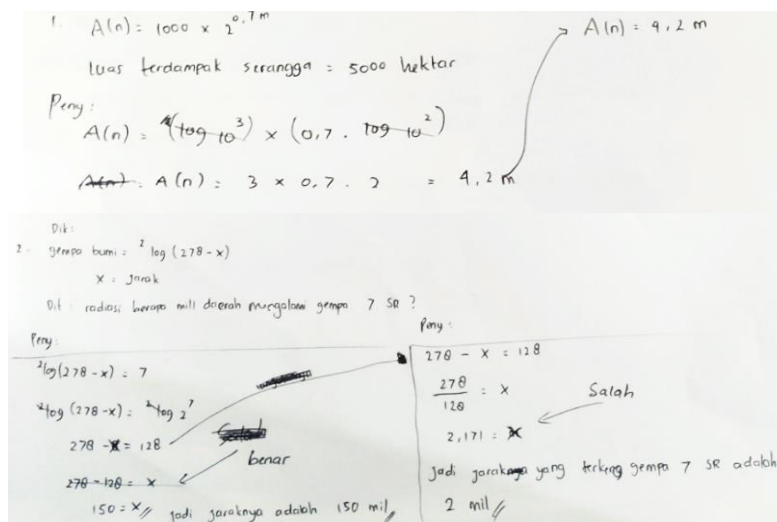 1. A(n) = 1000 x 2^0,7 m
Luas terdampak serangga = 5000 hektar
Peny :
A(n) = (log 10^3) x (0,7 . log 10^2)
A(n) = 3 x 0,7 . 2 = 4,2 m
A(n) = 4,2 m
Dik :
2. gempa bumi = ²log (278 - x)
x = jarak
Dit : radiasi berapa mill daerah mengalami gempa 7 SR ?
Peny :
²log (278 - x) = 7
²log (278 - x) = ²log 2^7
278 - x = 128
278 - 128 = x
benar
150 = x // Jadi jaraknya adalah 150 mil //
Peny :
278 - x = 128
278/128 = x
Salah
2,171 = x
Jadi jarak yang terkena gempa 7 SR adalah
2 mil //